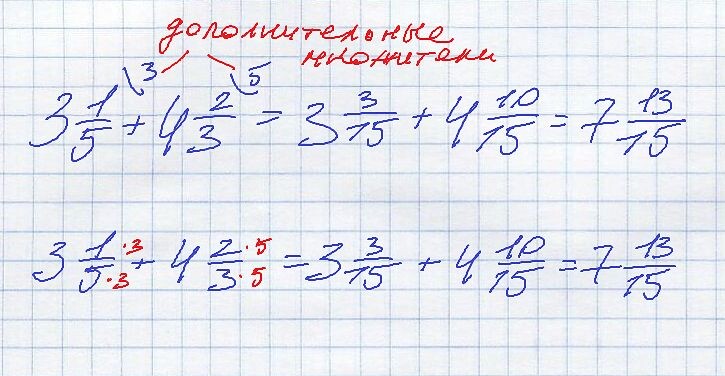 дополнительные
множители
3 5
3 1/5 + 4 2/3 = 3 3/15 + 4 10/15 = 7 13/15
3 1·3/5·3 + 4 2·5/3·5 = 3 3/15 + 4 10/15 = 7 13/15